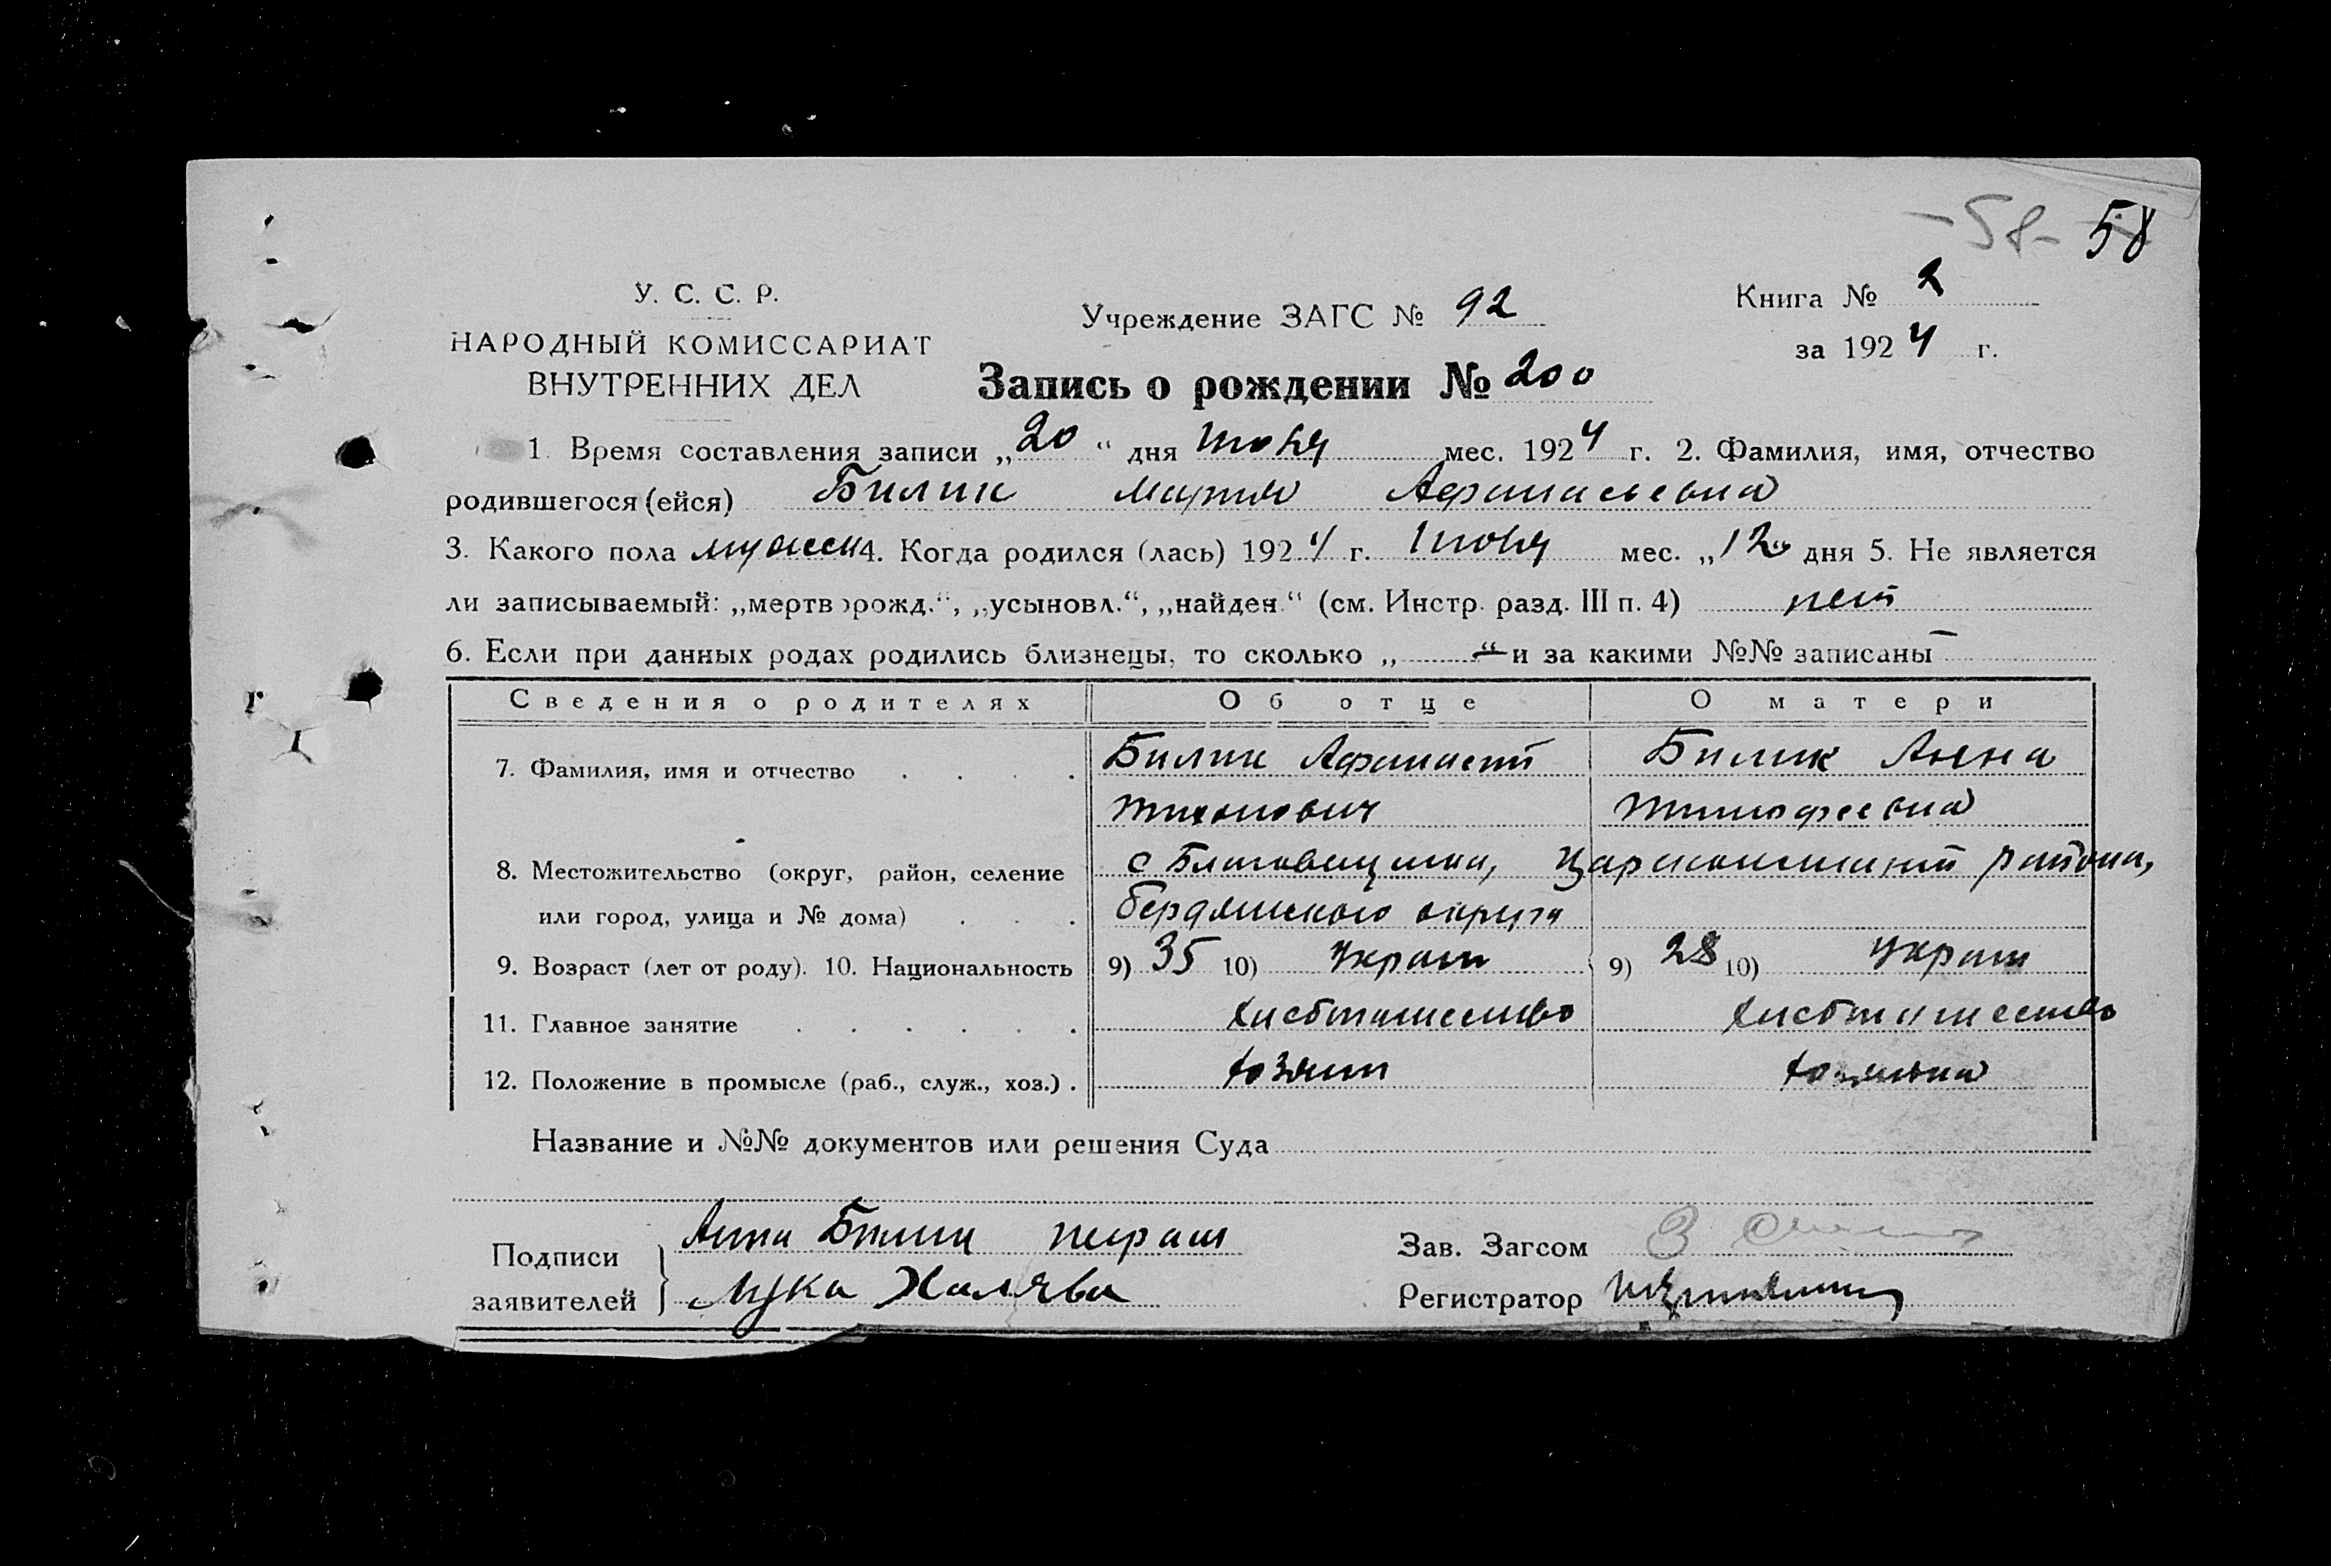 -58- 58
У. С. С. Р.
НАРОДНЫЙ КОМИССАРИАТ
ВНУТРЕННИХ ДЕЛ
Учреждение ЗАГС № 92
Книга № 2
за 1924 г.
Запись о рождении № 200
1. Время составления записи „20“ дня июля мес. 1924 г. 2. Фамилия, имя, отчество
родившегося (ейся) Билик Мария Афанасьевна
3. Какого пола 4. Когда родился (лась) 1924 г. июля мес. „12“ дня 5. Не является
ли записываемый: „мертворожд.“, „усыновл.“, „найден“ (см. Инстр. разд. III п. 4) нет
6. Если при данных родах родились близнецы, то сколько „—“ и за какими №№ записаны —
Сведения о родителях Об отце О матери
7. Фамилия, имя и отчество . . . . Билик Афанасий Билик Анна
Тихонович Тимофеевна
8. Местожительство (округ, район, селение с района,
или город, улица и № дома) . . . Бердянского округа
9. Возраст (лет от роду). 10. Национальность 9) 35 10) Украин 9) 28 10) Украин
11. Главное занятие . . . . . . хлебопашество хлебопашество
12. Положение в промысле (раб., служ., хоз.) . хозяин хозяйка
Название и №№ документов или решения Суда
Подписи
заявителей
Анна Билик неграм
Лука Халява
Зав. Загсом
Регистратор